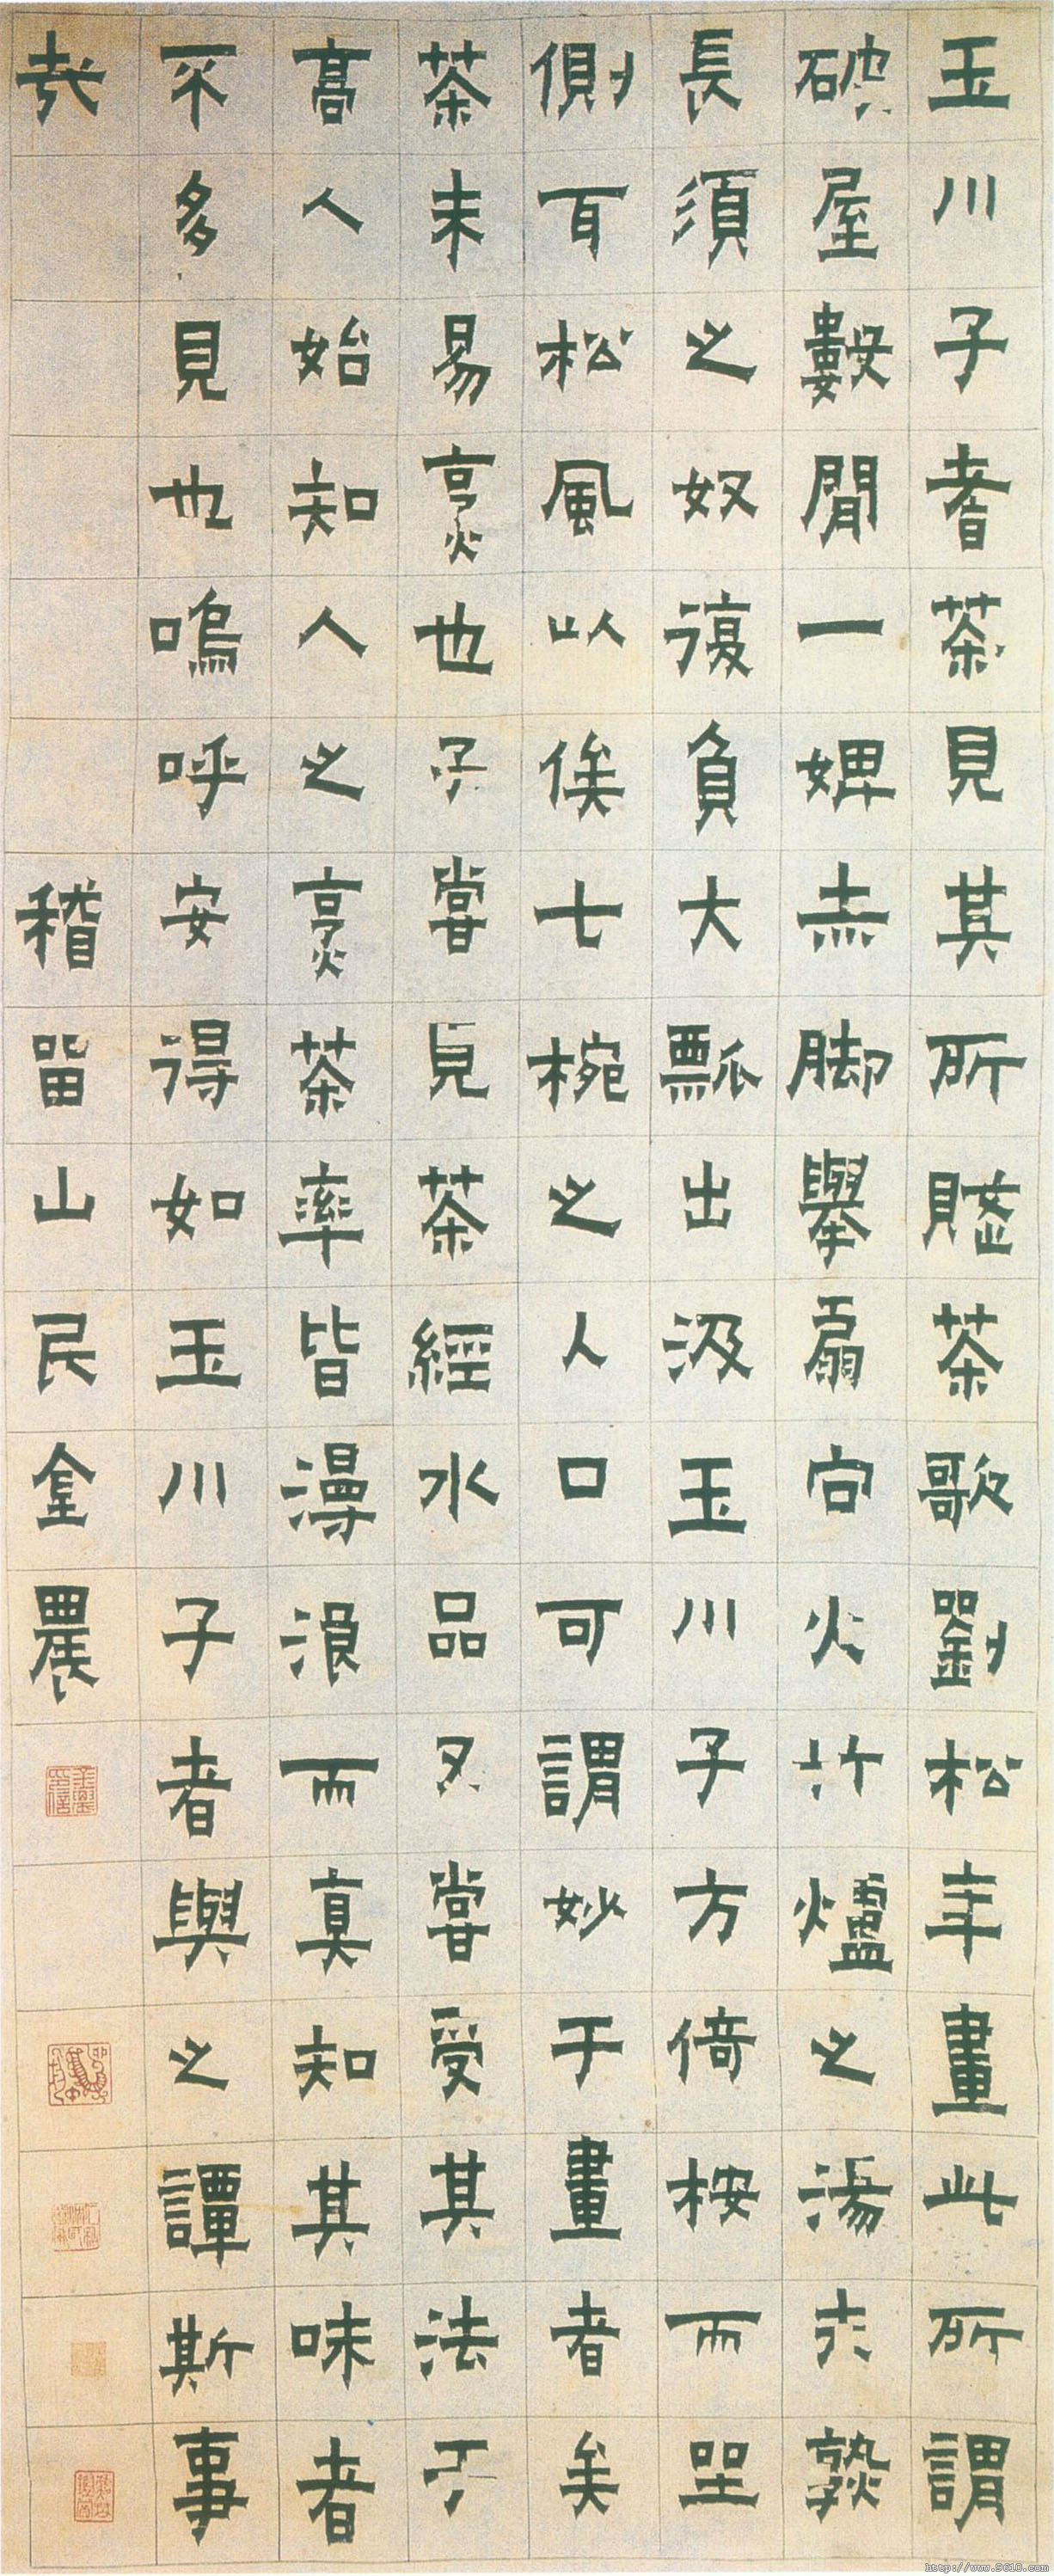 玉川子耆茶見其所賦茶歌劉松年畫此所謂
破屋數閒一婢赤脚舉扇向火竹爐之湯未熟
長須之奴復負大瓢出汲玉川子方倚桉而坐
側耳松風以俟七椀之入口可謂妙于畫者矣
茶未易烹也予嘗見茶經水品又嘗受其法于
高人始知人之烹茶率皆漫浪而真知其味者
不多見也嗚呼安得如玉川子者與之譚斯事
哉
稽留山民金農
金農印信
http://www.9610.com